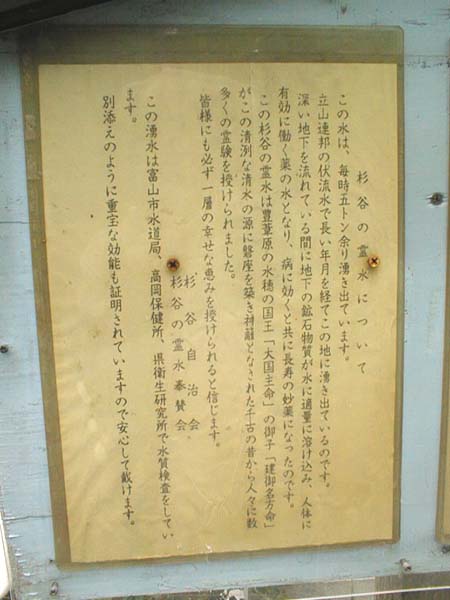 杉谷の霊水について
この水は、毎時五トン余り湧き出ています。
立山連邦の伏流水で長い年月を経てこの地に湧き出ているのです。
深い地下を流れている間に地下の鉱石物質が水に適量に溶け込み、人体に
有効に働く薬の水となり、病に効くと共に長寿の妙薬になったのです。
この杉谷の霊水は豊葦原の水穂の国王「大国主命」の御子「建御名方命」
がこの清冽な清水の源に磐座を築き神籬となされた千古の昔から人々に数
多くの霊験を授けられました。
皆様にも必ず一層の幸せな恵みを授けられると信じます。
杉谷自治会
杉谷の霊水奉賛会
この湧水は富山市水道局、高岡保健所、県衛生研究所で水質検査をしてい
ます。
別添えのように重宝な効能も証明されていますので安心して戴けます。